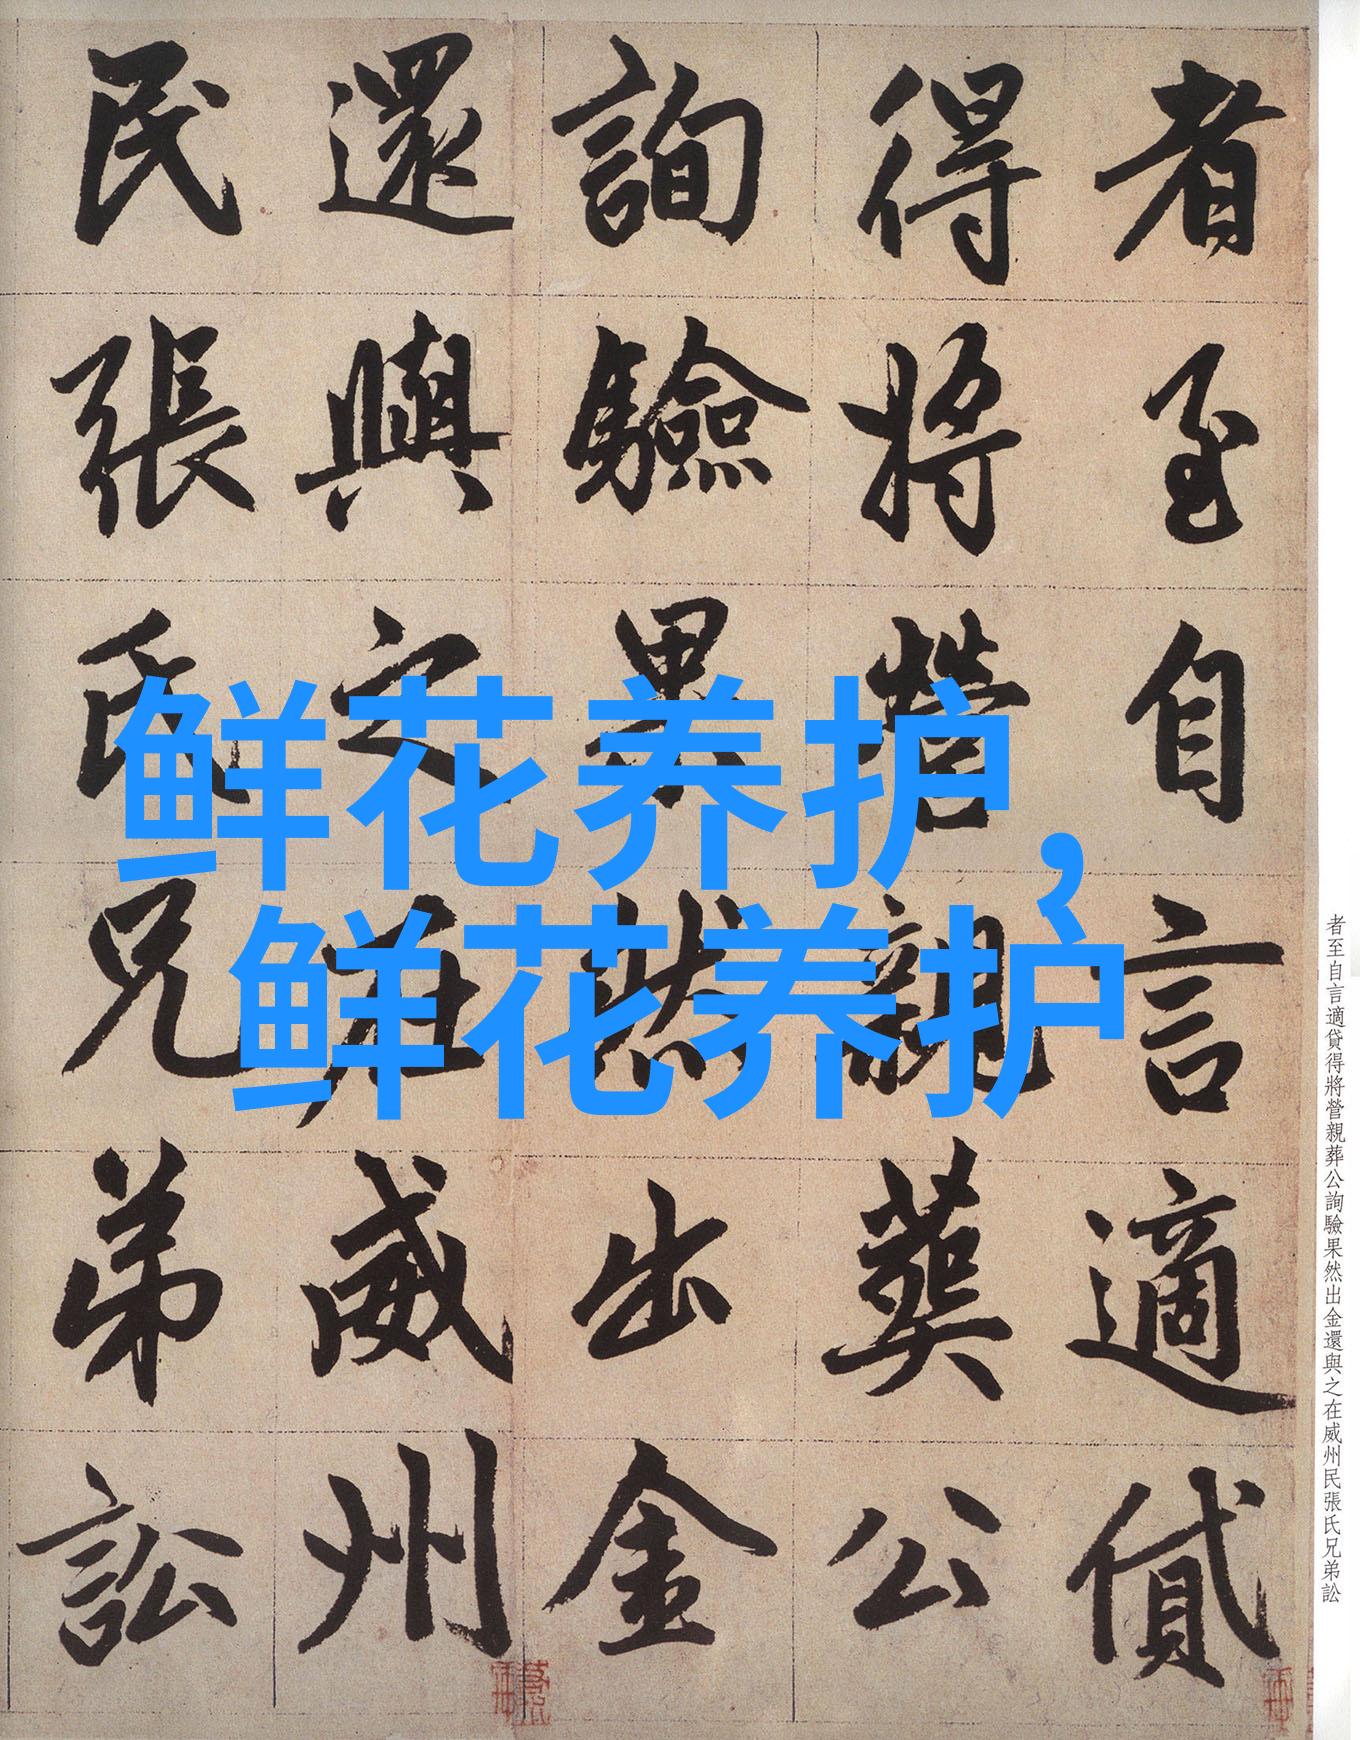 者至自言適貸
得將營親葬公
詢驗果然出金
還與之在威州
民張氏兄弟訟
鲜花养护,
鲜花养护
者至自言適貸得將營親葬公詢驗果然出金還與之在威州民張氏兄弟訟